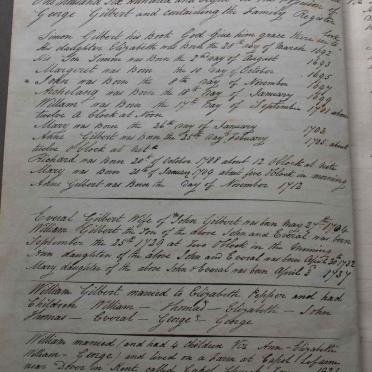 One thousand Six hundred and Eight in the Possession of
George Gilbert and containing the Family Register
Simon Gilbert his Book God Give him grace therein to look
his daughter Elizabeth was Born the 28th day of March 1692
His Son Simon was Born the 2nd day of August 1693
Margaret was Born the 10 Day of October 1695
John was Born the Day of November 1697
Was Born the 10th Day of January 1699
William was Born the 17th Day of September about
twelve A clock at Noon
Mary was Born the 26th day of January 1702
Gilbert was Born the 25th day February 1705 about
twelve O'Clock at
Richard was Born 20th of October 1708 about 12 O'Clock at
Mary was Born 20th of January 1709 about five O'Clock in morning
Gilbert was Born the Day of November 1712
Everal Gilbert Wife of John Gilbert was born May 27th 1704
William Gilbert the Son of the above John and Everal was born
September the 25th 1729 at two O'Clock in the morning
Ann daughter of the above John and Everal was born April 20th 1732
Mary daughter of the above John & Everal was born April 8th 1737
William Gilbert married to Elizabeth Pepper and had
Children William - Thomas - Elizabeth - John
Thomas - Everal - George - George
William married (and had 4 Children Viz Ann - Elizabeth
William - George) and lived on a Farm at Capel
near Dover in Kent called Capel Church Farm